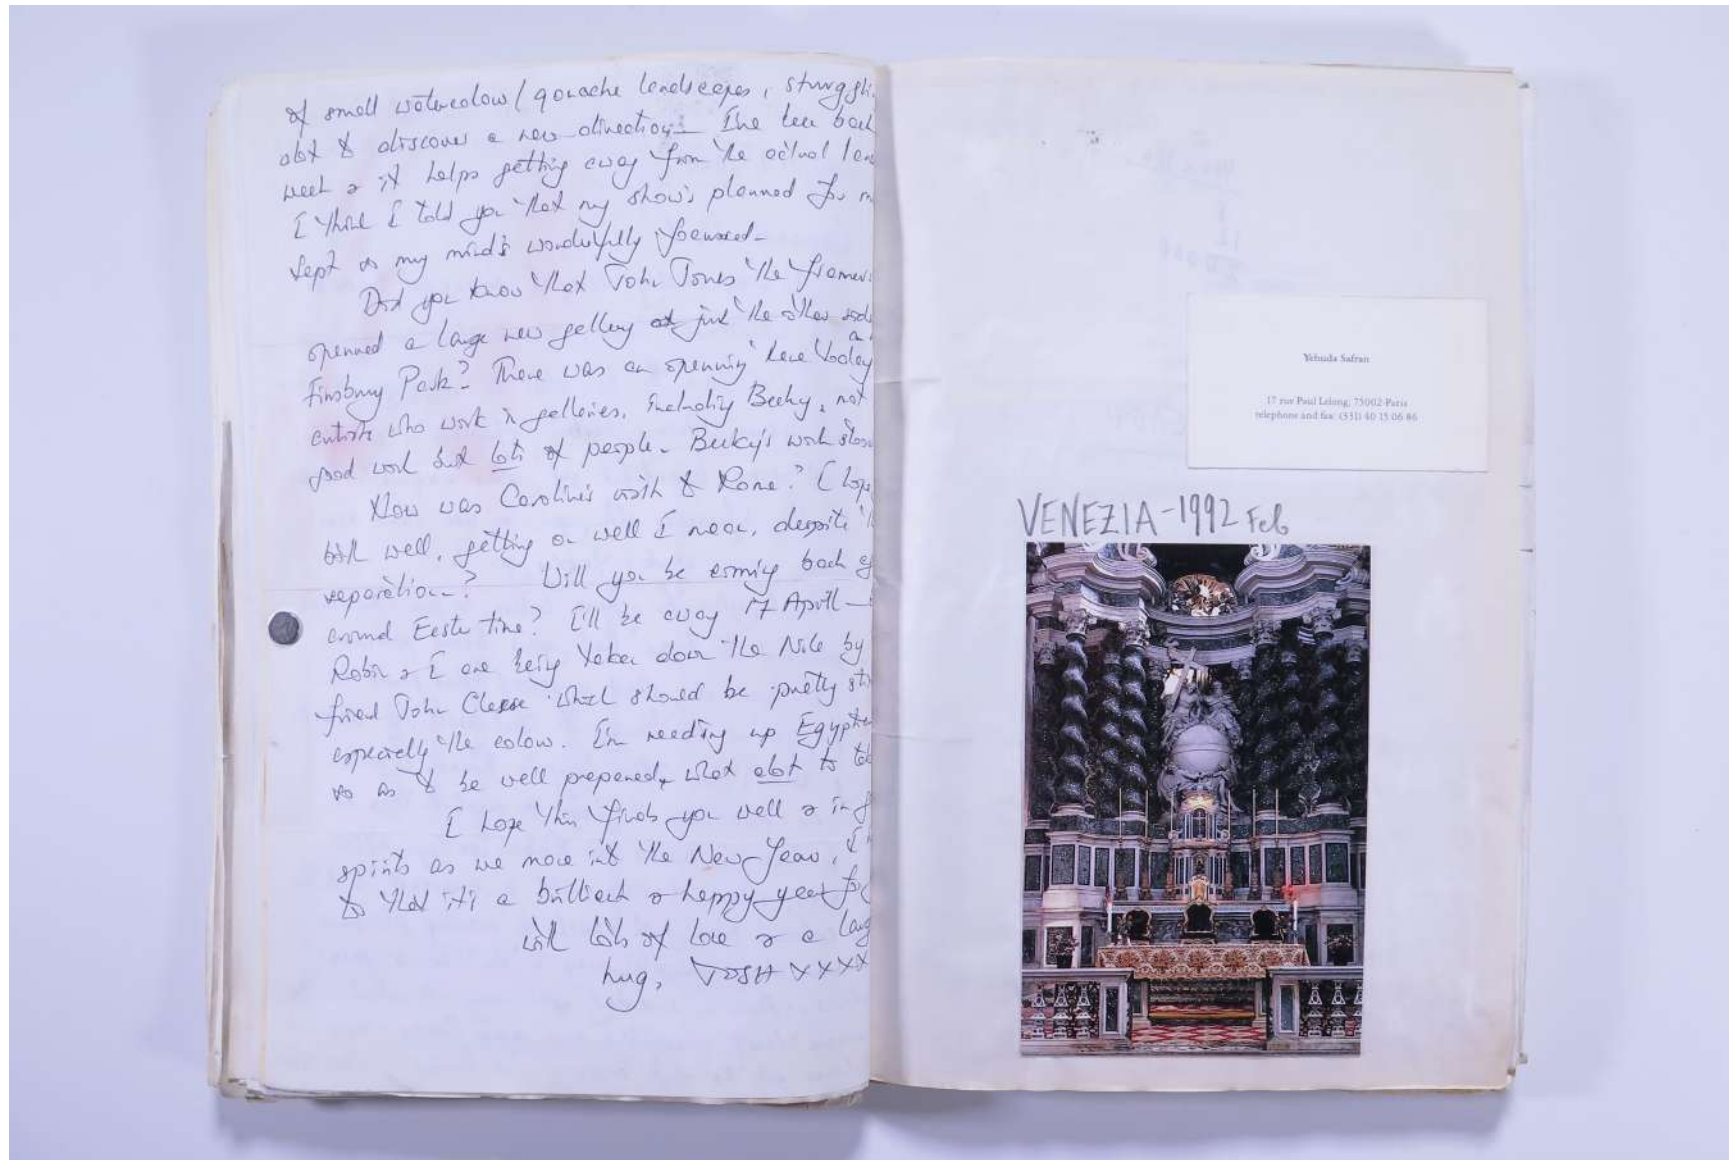 of small watercolour/gouache landscapes, struggli
alot to discover a new direction. I've been back
week & it helps getting away from the actual lan
I think I told you that my show's planned for m
Sept so my mind's wonderfully focussed.
Did you know that John Jones the framers
openned a large new gallery just the other side
Finsbury Park? There was an openning here today
artists who work in galleries, including Becky, not
good work but lots of people. Becky's work stood
How was Caroline's visit to Rome? I hope
both well, getting on well I mean, despite
separation? Will you be coming back
around Easter time? I'll be away 17 April –
Robin & I are being taken down the Nile by
friend John Cleese which should be pretty sti
especially the colour. I'm reading up Egyptia
so as to be well prepared, what alot to
I hope this finds you well & in
spirits as we move into the New Year, I
to that it's a brilliant & happy year for
with lots of love & a larg
hug, JOSH XXXX
Yehuda Safran
17 rue Paul Lelong, 75002-Paris
telephone and fax: (331) 40 15 06 86
VENEZIA - 1992 Feb